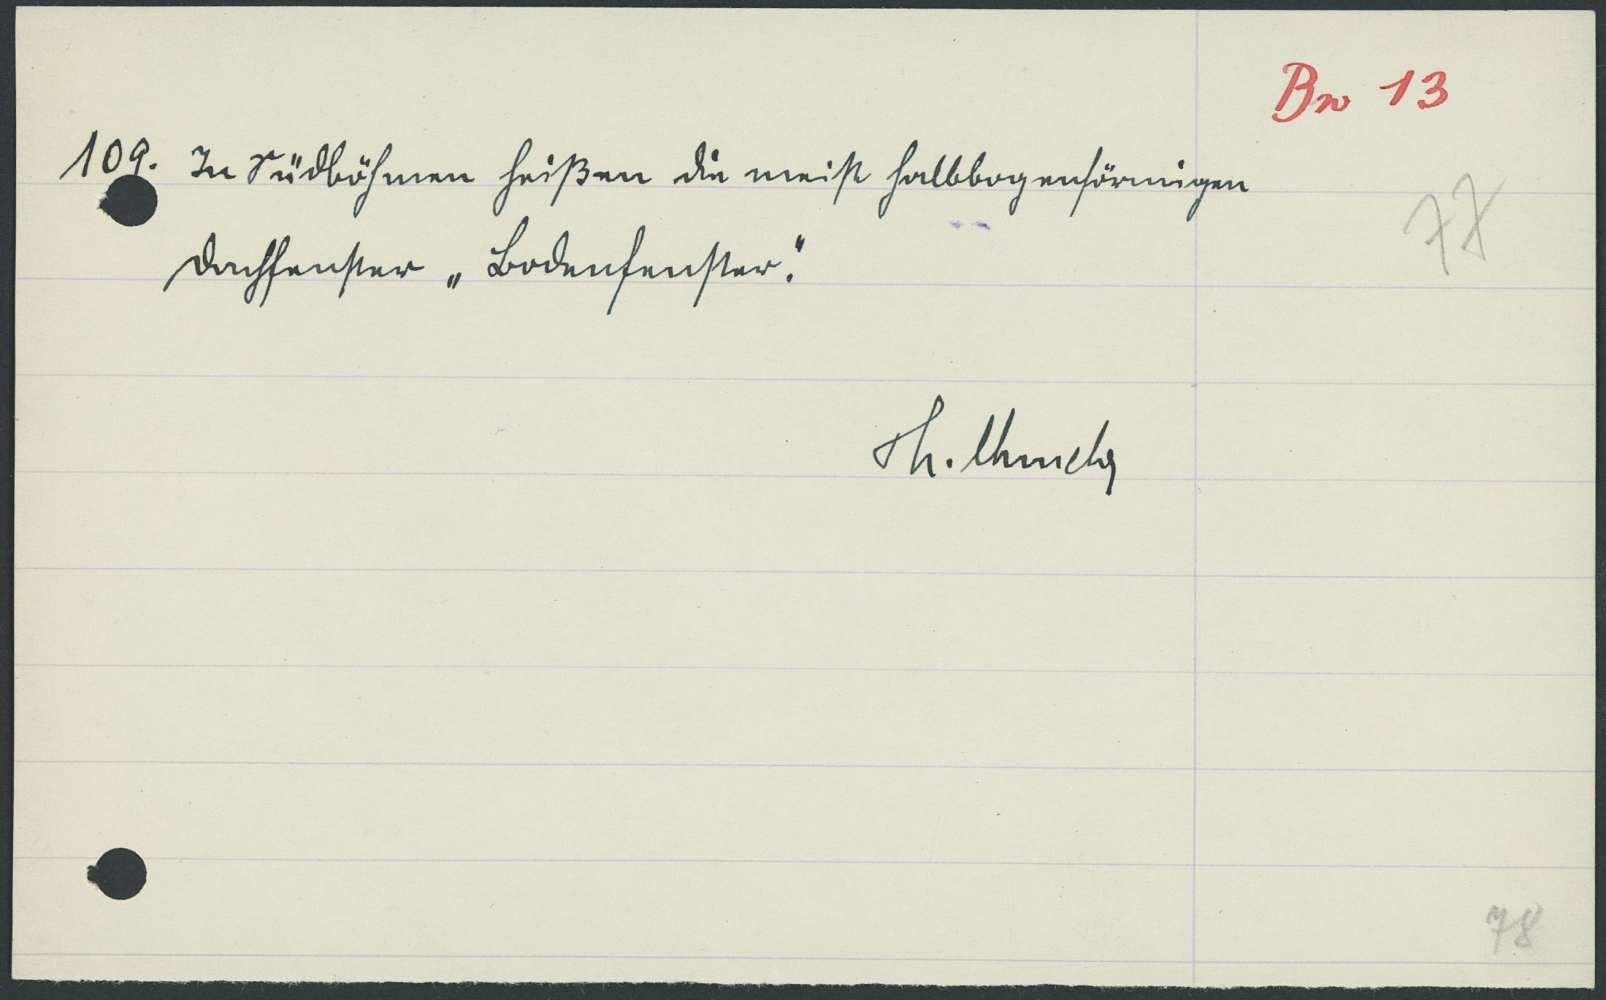 Bw 13
109. In Südböhmen heißen die meist halbbogenförmigen
77
Dachfenster „Bodenfenster."
Th. Chmela
78